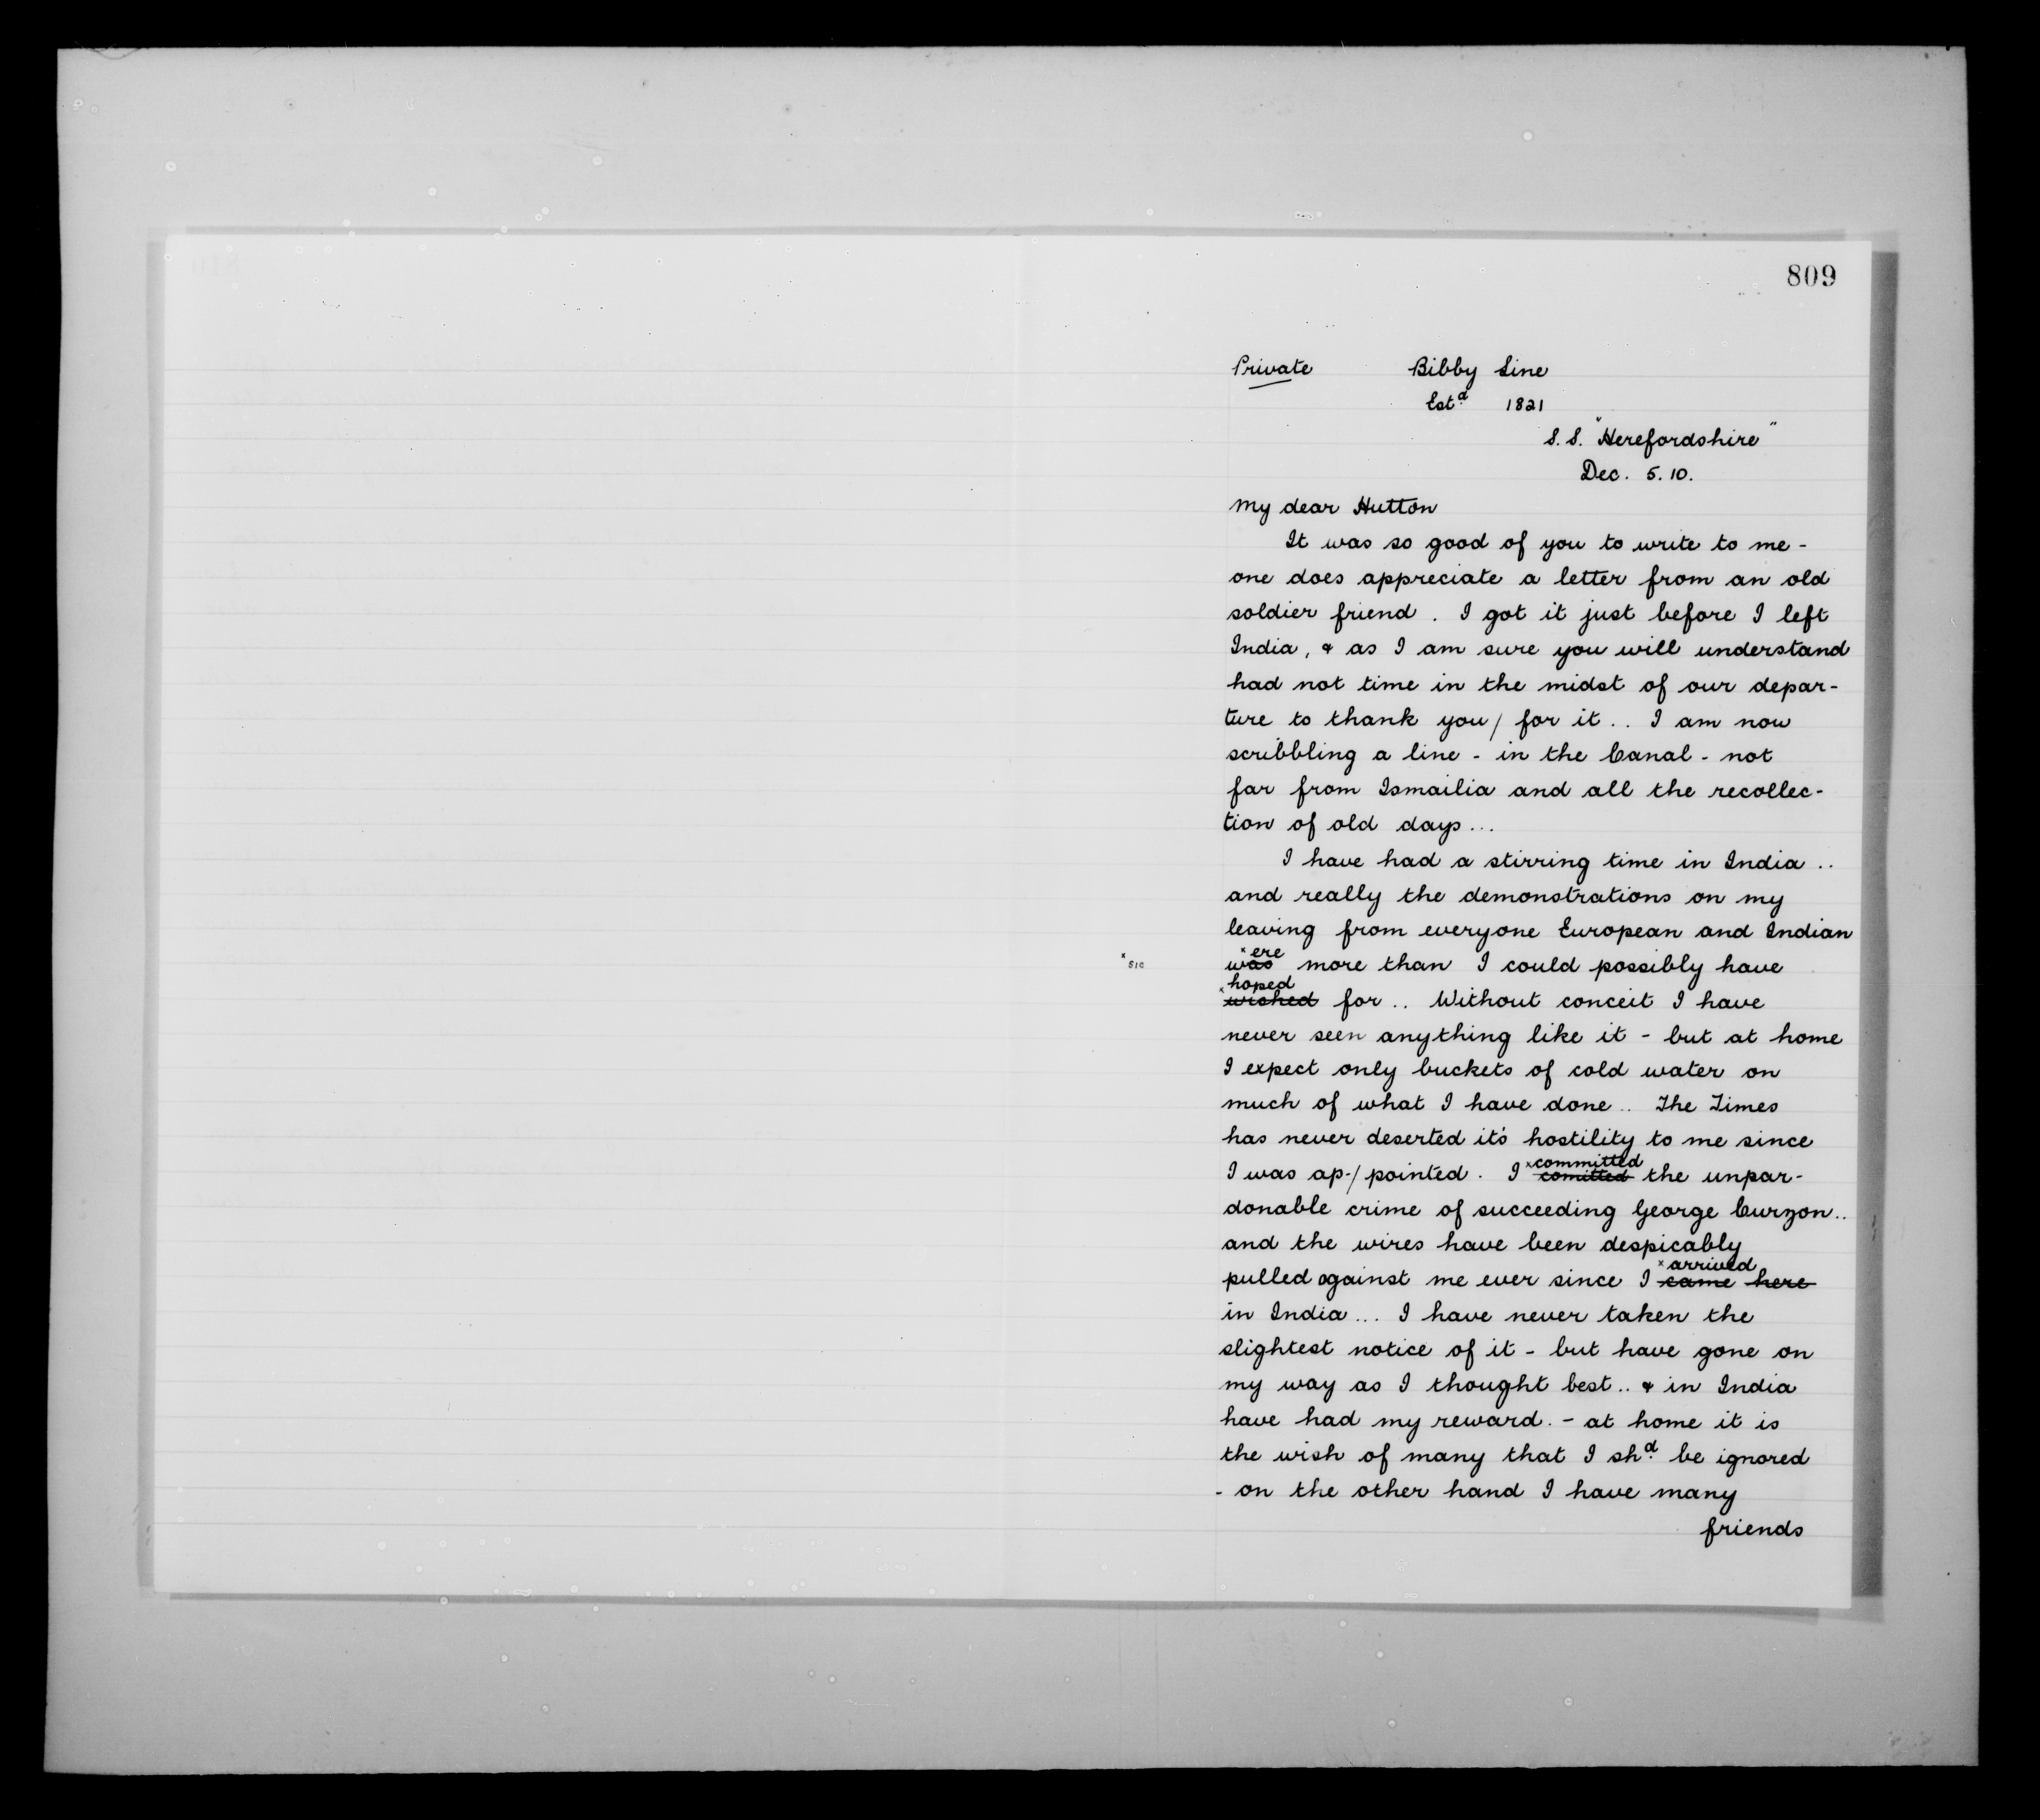 809
Private Bibby Line
Estd. 1821
S.S. "Herefordshire"
Dec. 5. 10.
My dear Hutton
It was so good of you to write to me -
one does appreciate a letter from an old
soldier friend. I got it just before I left
India, & as I am sure you will understand
had not time in the midst of our depar-
ture to thank you/ for it.. I am now
scribbling a line - in the Canal - not
far from Ismailia and all the recollec-
tion of old days...
I have had a stirring time in India ..
and really the demonstrations on my
leaving from everyone European and Indian
x ere
x sic was more than I could possibly have
x hoped
wished for .. Without conceit I have
never seen anything like it - but at home
I expect only buckets of cold water on
much of what I have done .. The Times
has never deserted it's hostility to me since
x committed
I was ap-/pointed. I comitted the unpar-
donable crime of succeeding George Curzon..
and the wires have been despicably
x arrived
pulled against me ever since I came here
in India ... I have never taken the
slightest notice of it - but have gone on
my way as I thought best.. & in India
have had my reward. - at home it is
the wish of many that I shd. be ignored
- on the other hand I have many
friends